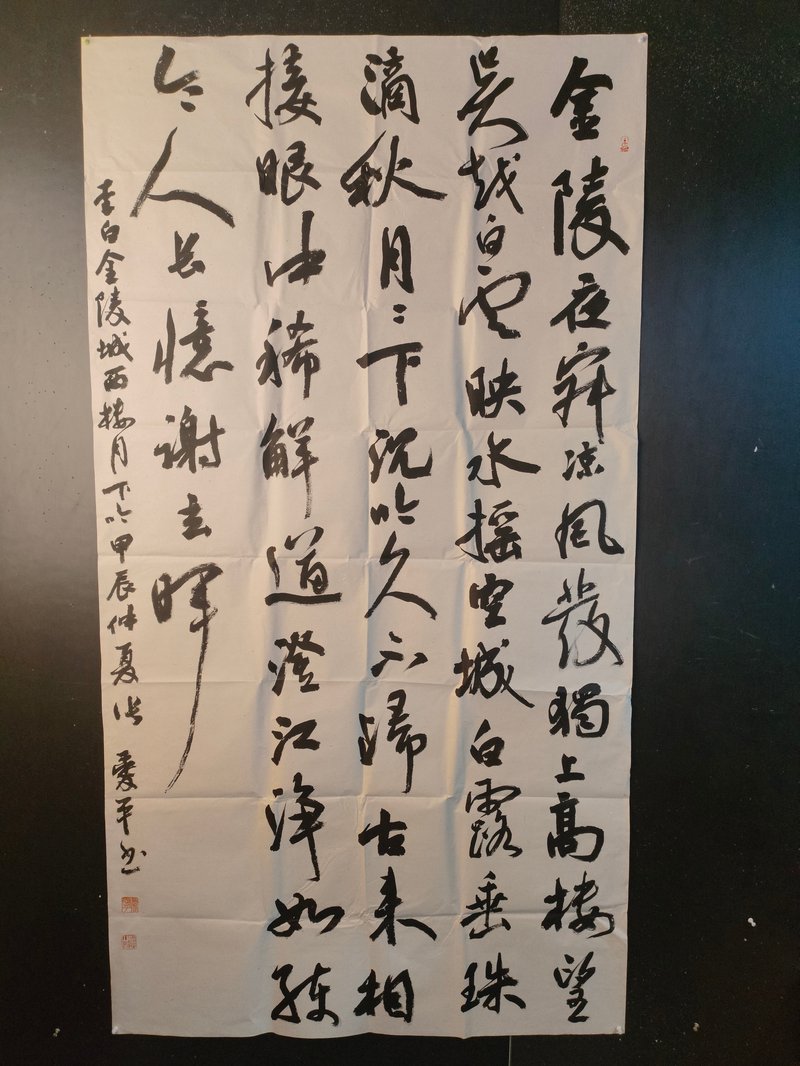 金陵夜寂凉风發獨上高楼望
吴越白雲映水摇空城白露垂珠
滴秋月〻下沉吟久不歸古来相
接眼中稀解道澄江净如練
令人长憶謝玄暉
李白金陵城西楼月下吟甲辰仲夏张爱平书